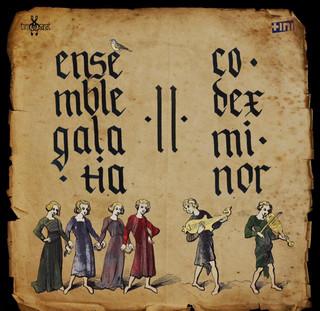 ense
mble
gala
· tia
·||·
co·
dex
mi·
nor